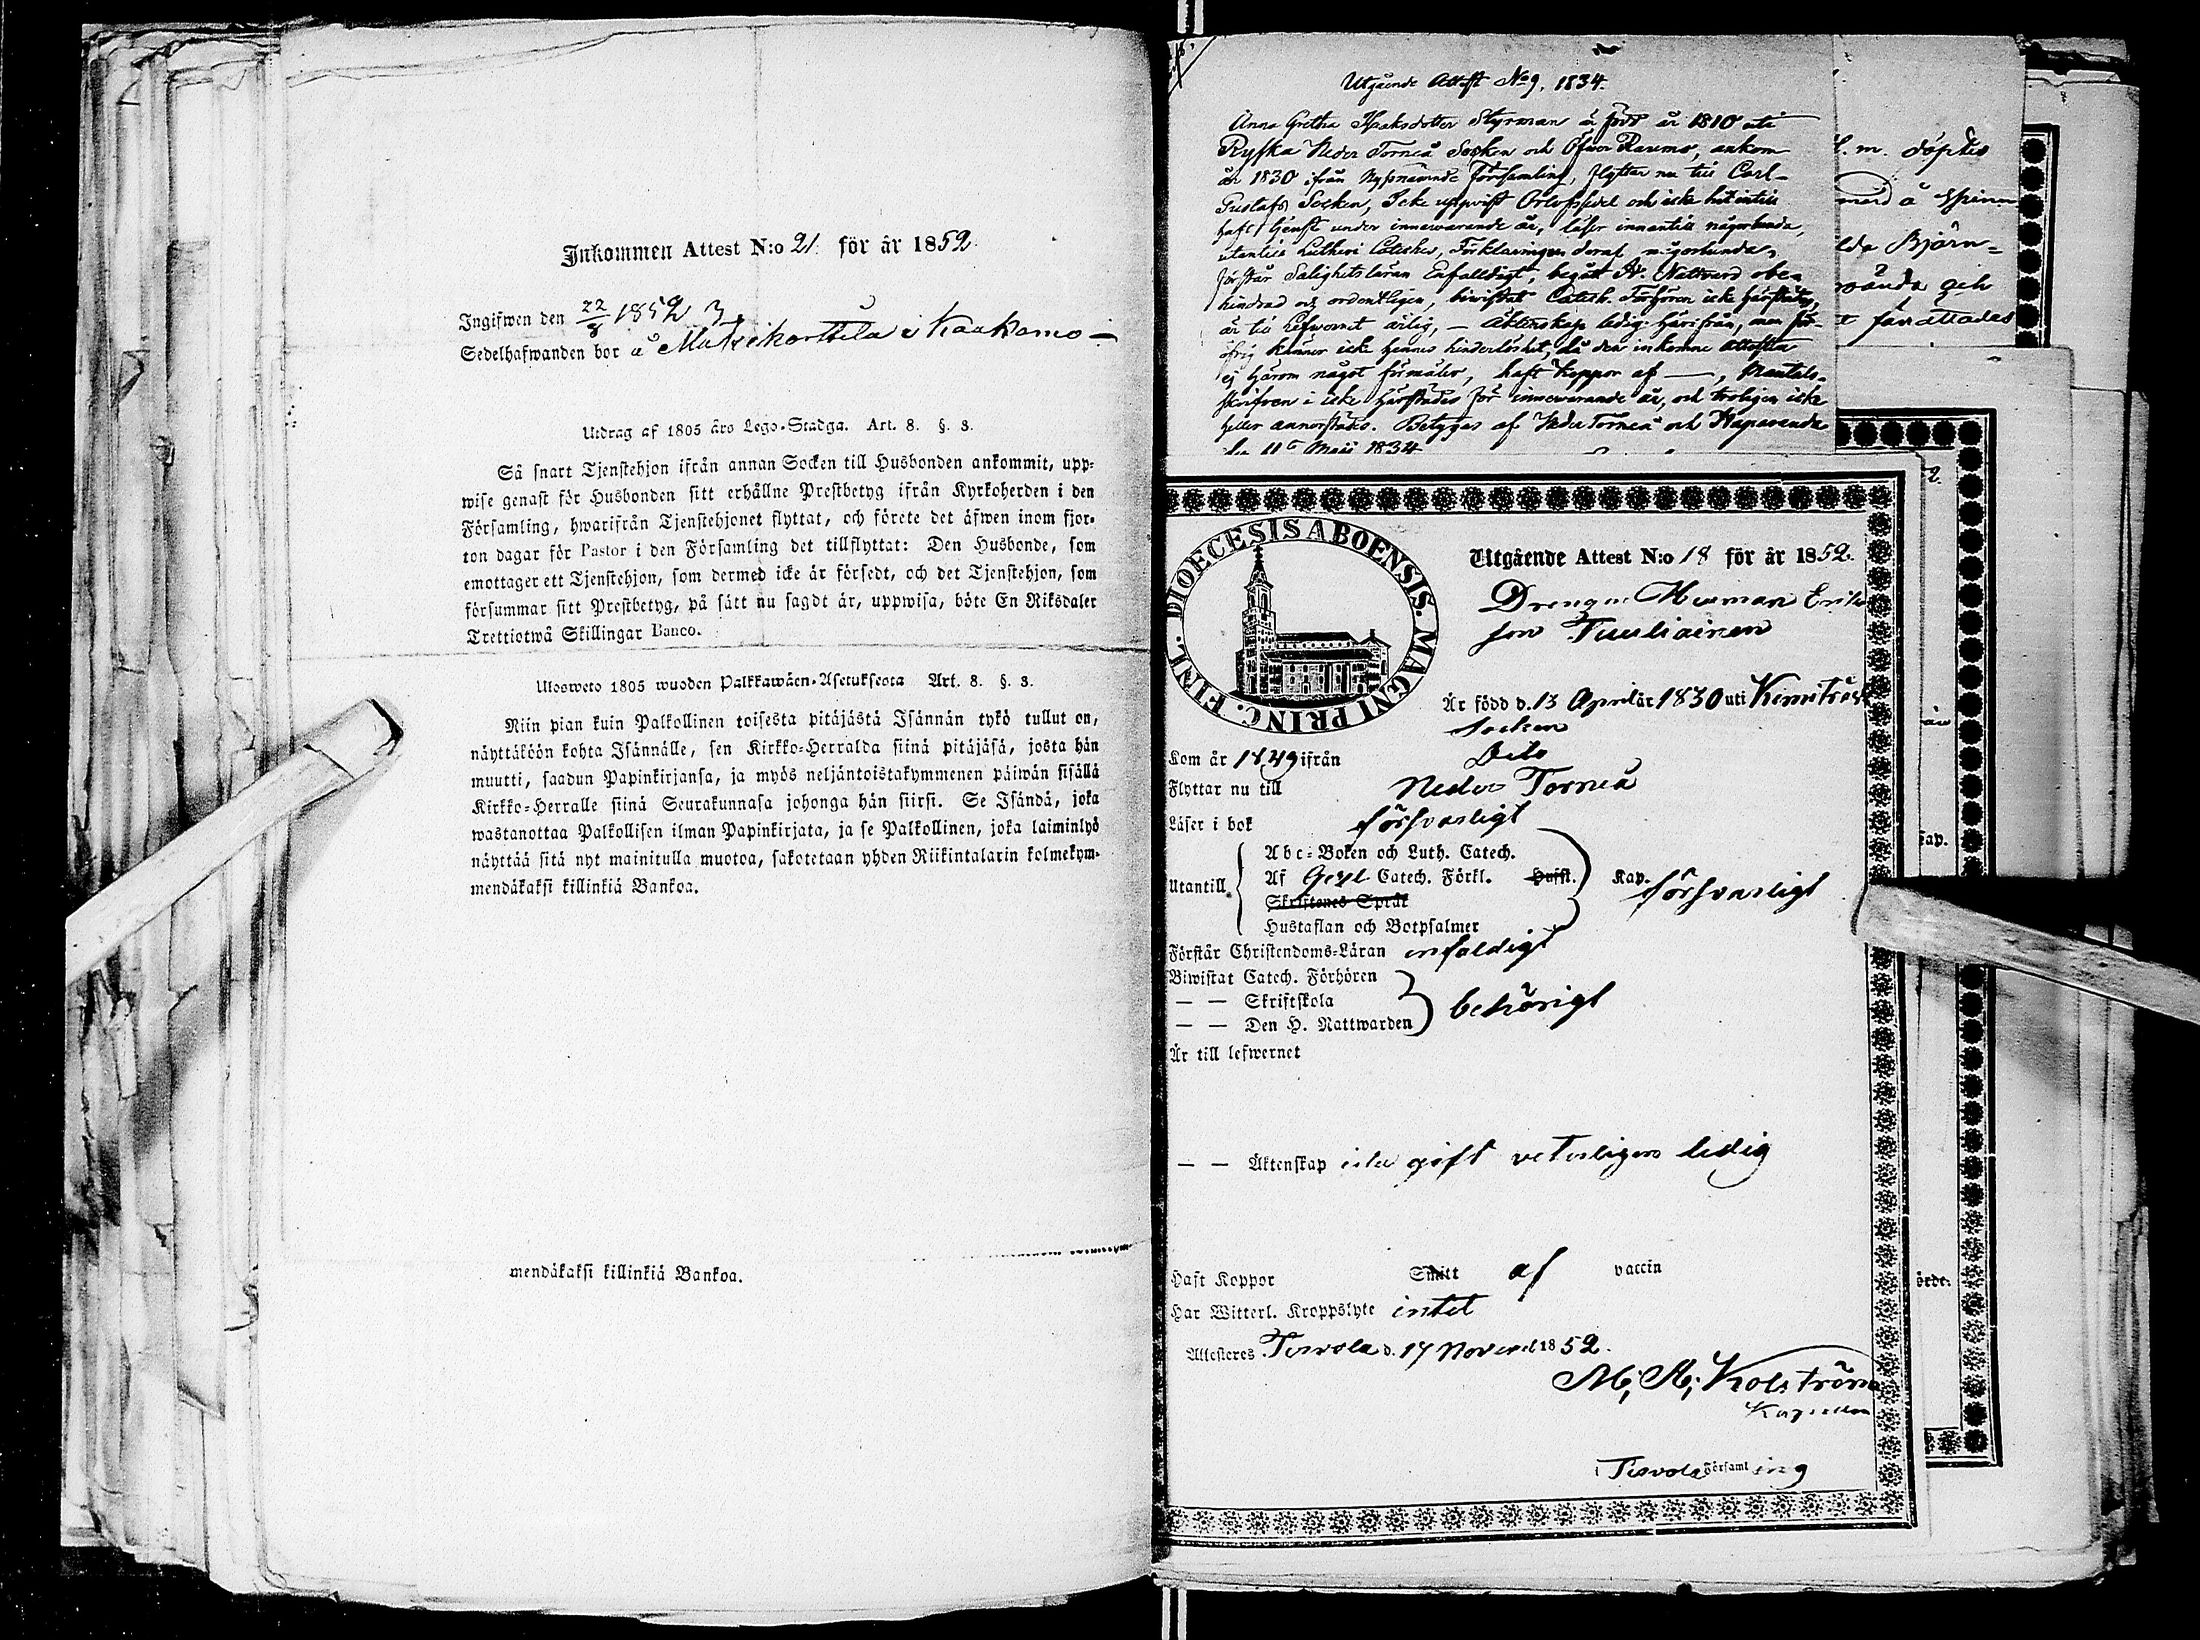 Inkommen Attest N:o 21. för år 1852.
Ingifwen den 22/8 1852
Sedelhafwanden bor å i Kaakamo
Utdrag af 1805 års Lego-Stadga. Art. 8. §. 3.
Så snart Tjenstehjon ifrån annan Socken till Husbonden ankommit, upp-
wise genast för Husbonden sitt erhållne Prestbetyg ifrån Kyrkoherden i den
Församling, hwarifrån Tjenstehjonet flyttat, och förete det äfwen inom fjor-
ton dagar för Pastor i den Församling det tillflyttat: Den Husbonde, som
emottager ett Tjenstehjon, som dermed icke är försedt, och det Tjenstehjon, som
försummar sitt Prestbetyg, på sätt nu sagdt är, uppwisa, böte En Riksdaler
Trettiotwå Skillingar Banco.
Ulosweto 1805 wuoden Palkkawäen-Asetuksesta Art. 8. §. 3.
Niin pian kuin Palkollinen toisesta pitäjästä Isännän tykö tullut on,
näyttäköön kohta Isännälle, sen Kirkko-Herralda siinä pitäjäsä, josta hän
muutti, saadun Papinkirjansa, ja myös neljäntoistakymmenen päiwän sisällä
Kirkko-Herralle siinä Seurakunnasa johonga hän siirsi. Se Isändä, joka
wastanottaa Palkollisen ilman Papinkirjata, ja se Palkollinen, joka laiminlyö
näyttää sitä nyt mainitulla muotoa, sakotetaan yhden Riikintalarin kolmekym-
mendäkaksi killinkiä Bankoa.
mendäkaksi killinkiä Bankoa.
Utgående Attest No 9, 1834.
Anna Gretha Isaksdotter Styrman är född år 1810 uti
Ryska Neder Torneå Socken och Öfver Raumo, ankom
år 1830 ifrån nyssnämnde Församling, flyttar nu till Carl-
Gustafs Socken, Icke uppvist Orlofssedel och icke hitintill
haft tjenst under innewarande år, läser innantill någorlunda,
utantill Lutheri Cateches, Förklaringen deraf någorlunda,
förstår Salighetsläran Enfalldigt, begått H. Nattvard obe-
hindrad och ordentligen, biwistat Catech. Förhören icke härstädes,
är till Lefwernet ärlig, — Äktenskap ledig härifrån, men för-
öfrig känner icke hennes hinderlöshet, då den inkomne Attesten
ej härom något förmäler, haft koppor af —, Mantals-
skrifven i icke härstädes för innewarande år, och troligen icke
heller annorstädes. Betygas af Neder Torneå och Haparanda
den 11 Maii 1834
l. m. döptes
Björn-
och
författades
DIOECESIS ABOENSIS. MAGNI PRINC. FINL.
Utgående Attest N:o 18 för år 1852.
Drengen Herman Eriks
son Tuuliainen
Är född d. 13 April år 1830 uti Kemiträsk
Socken
Kom år 1849 ifrån Dito
Flyttar nu till Neder Torneå
Läser i bok försvarligt
Utantill { Abc-Boken och Luth. Catech.
Af Catech. Förkl. Hufst. Kap. försvarligt
Skriftenes Språk
Hustaflan och Botpsalmer
Förstår Christendoms-Läran enfaldigt
Biwistat Catech. Förhören
— — Skriftskola behörigt
— — Den H. Nattwarden
Är till lefwernet
— — Äktenskap icke gift veterligen ledig
Haft Koppor Smitt af vaccin
Har Witterl. Kroppslyte intet
Attesteres Tervola d. 17 Novemb 1852.
M; M; Kolström
Kapellan
i Tervola Församling